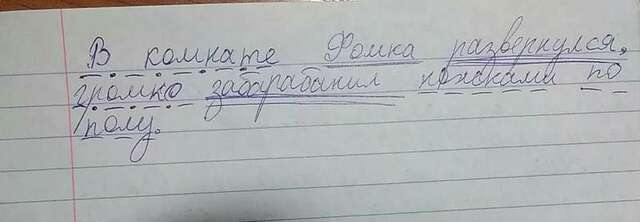 В комнате Фомка развернулся,
громко забарабанил ножками по
полу.